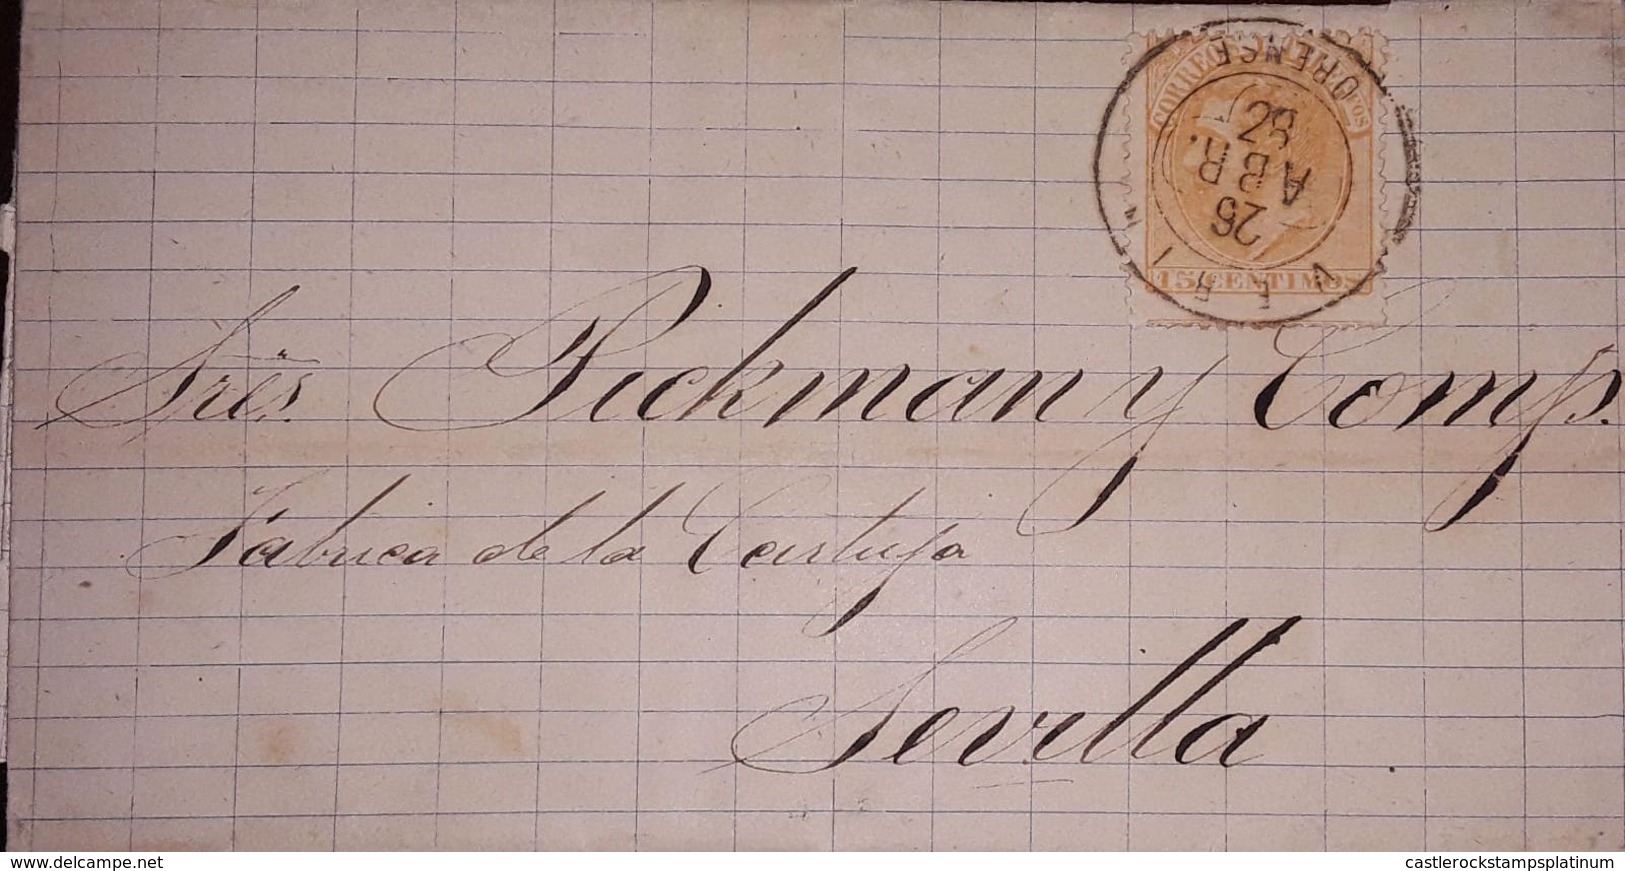 CORREOS Y TELEGFOS
ORENSE
26
ABR.
82
VERIN
15 CENTIMOS
Sres. Pickman y Comp.
Fabrica de la Cartuja
Sevilla
www.delcampe.net
castlerockstampsplatinum